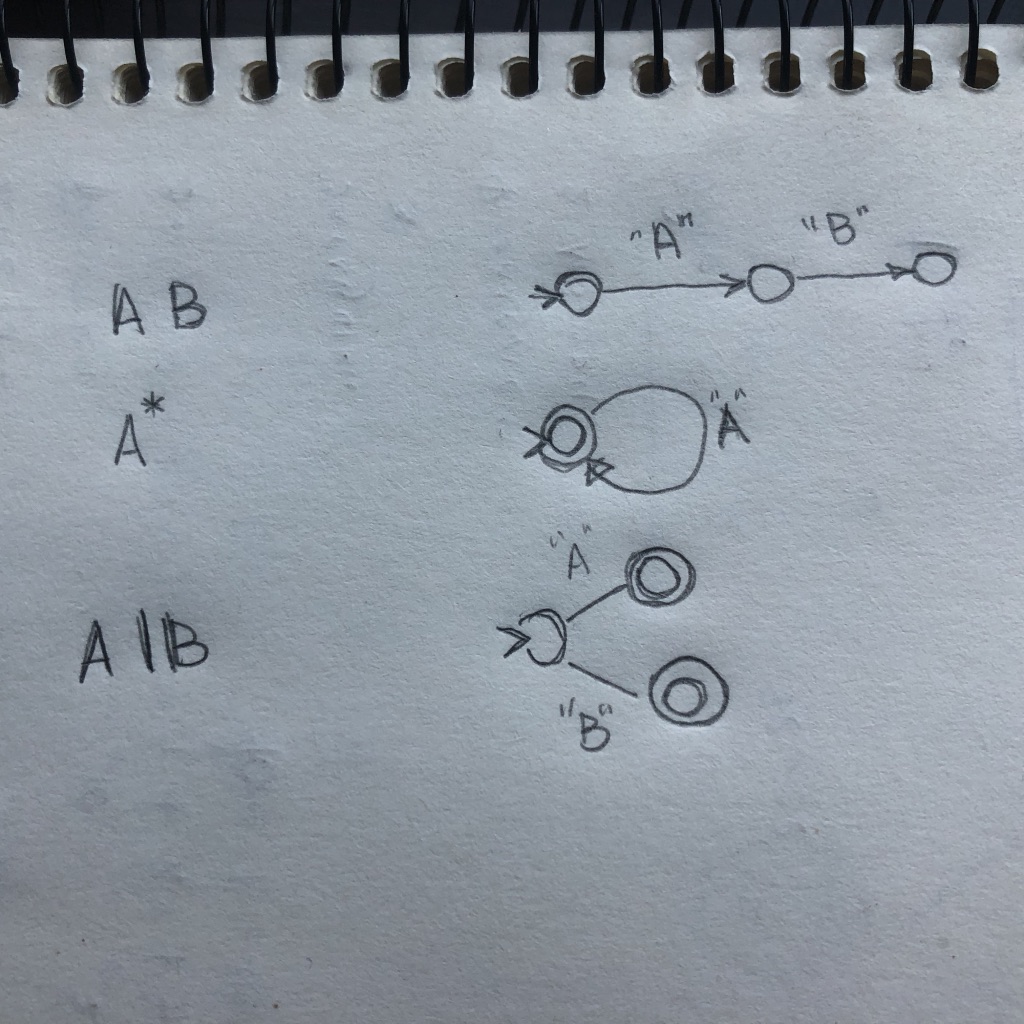 A B "A" "B"
A* "A"
A|B "A"
"B"